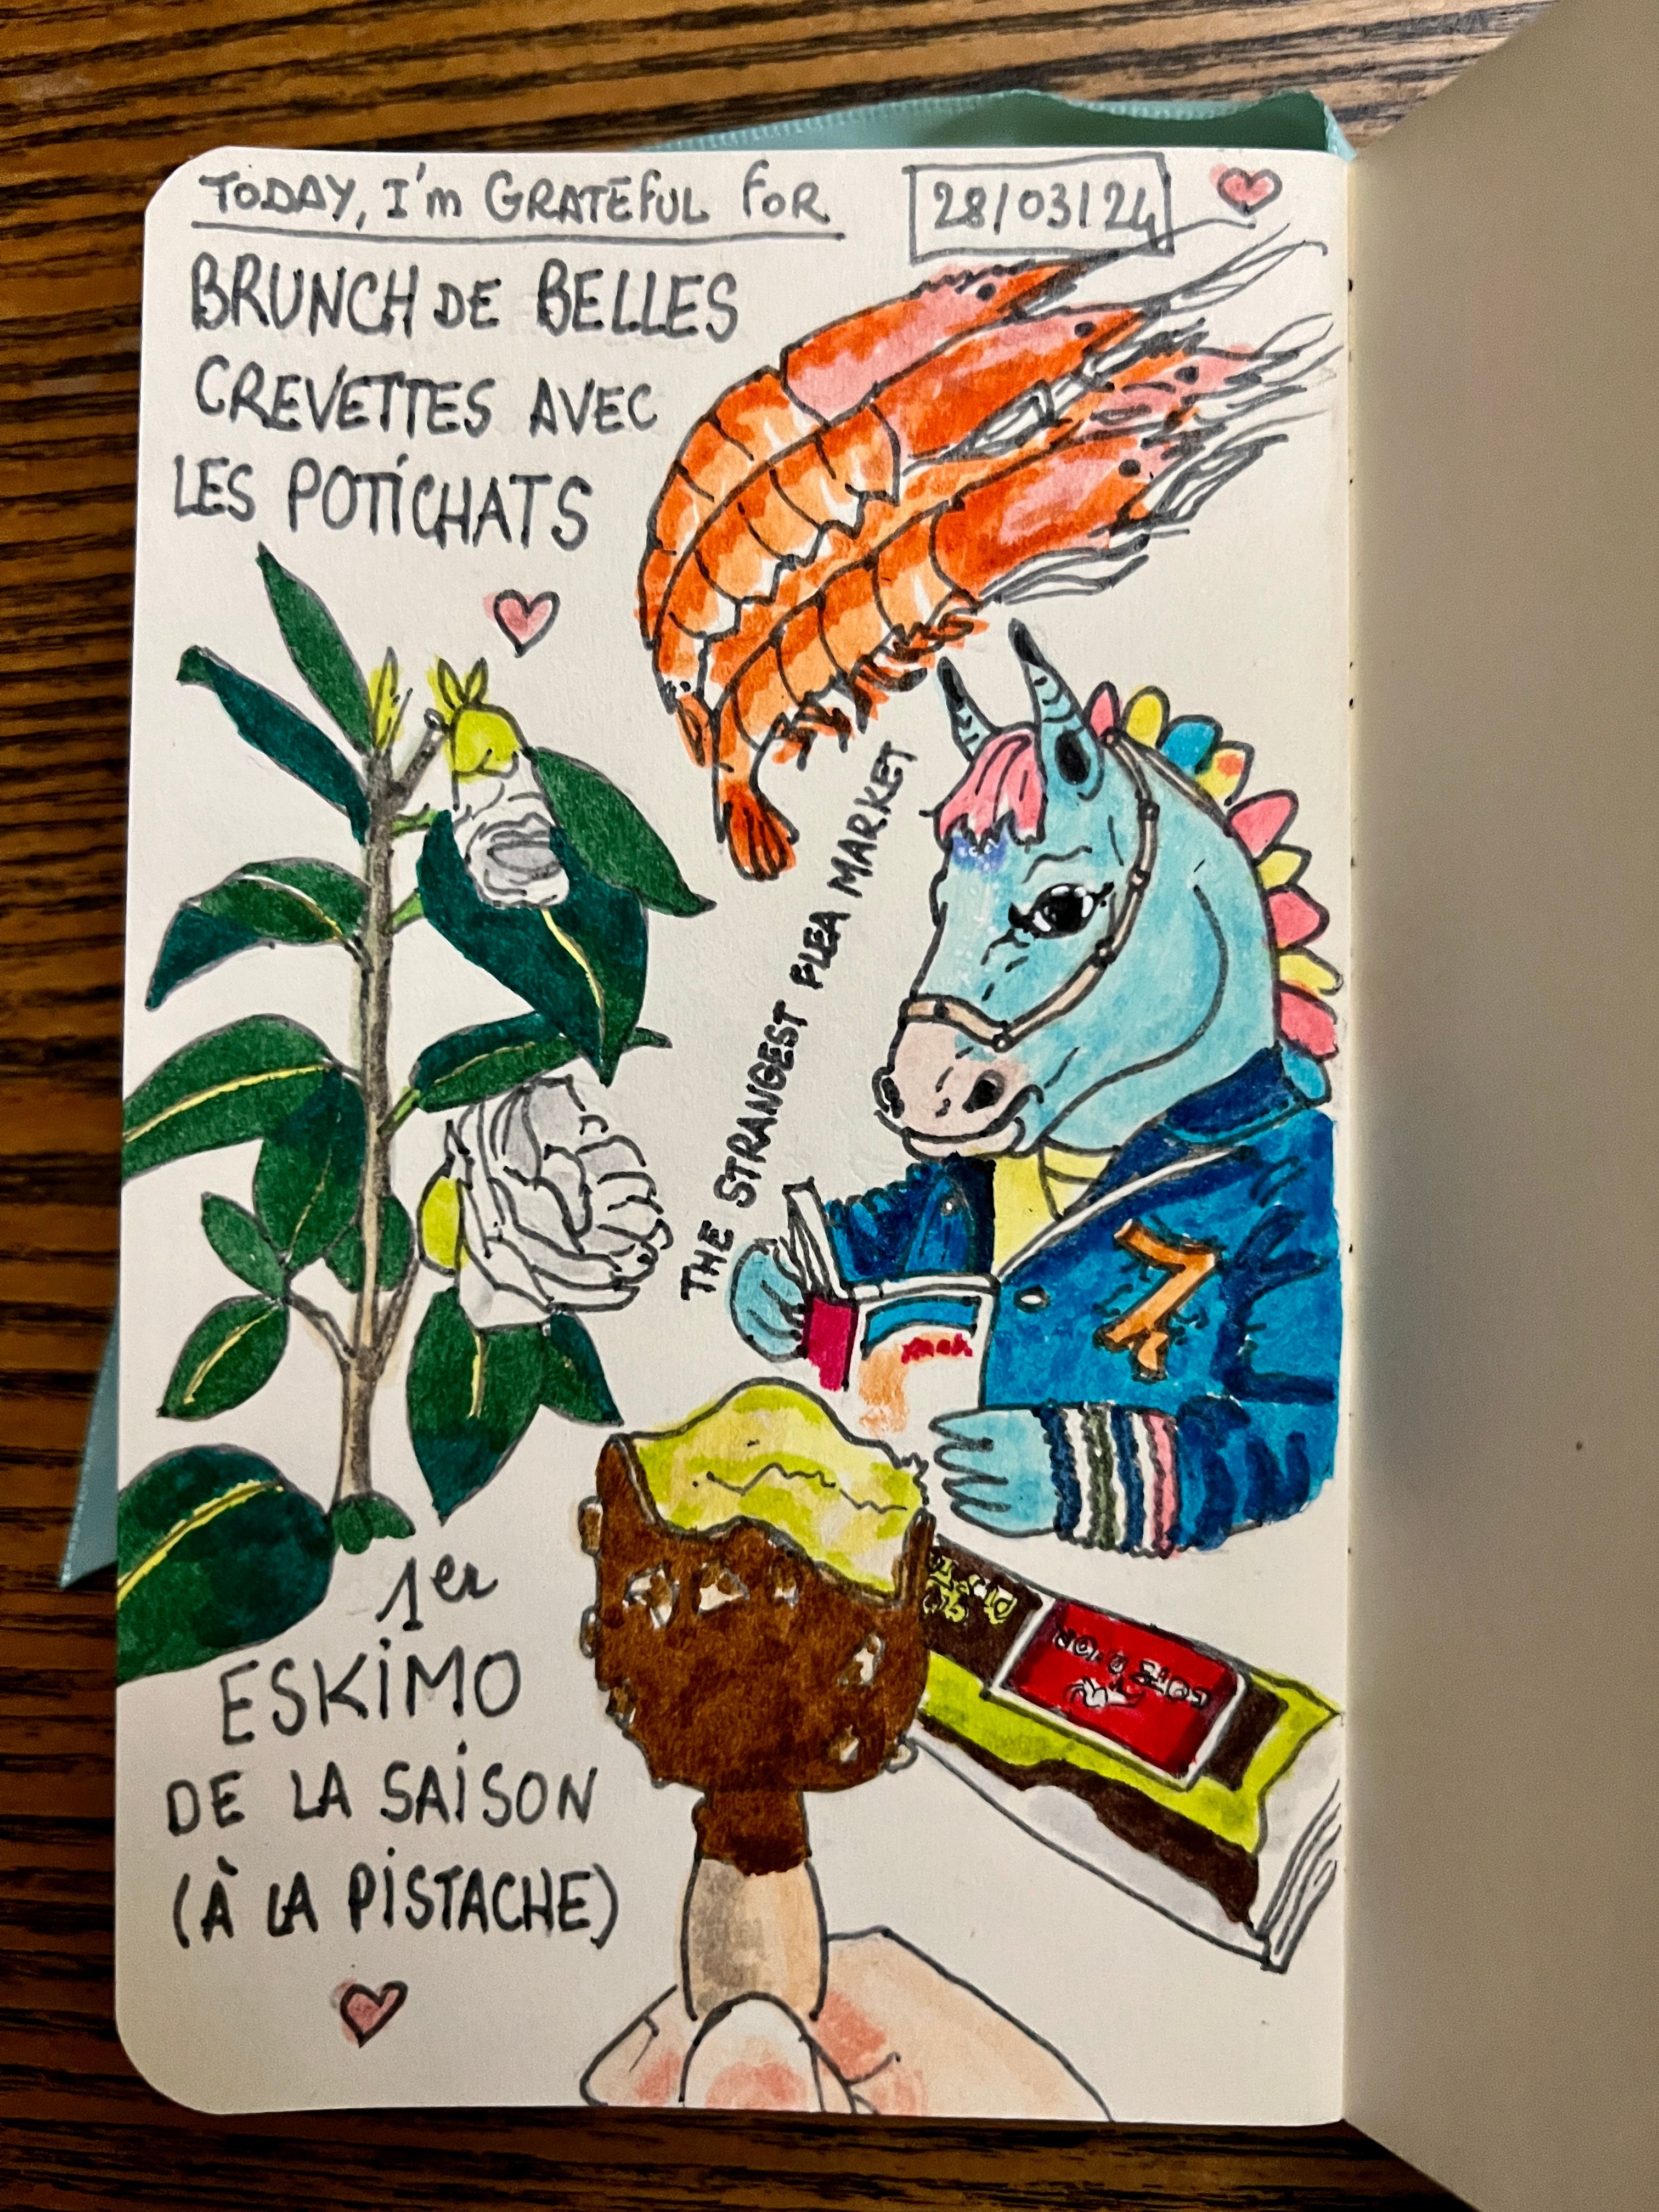 TODAY, I'm GRATEFUL FOR
28/03/24
BRUNCH DE BELLES
CREVETTES AVEC
LES POTICHATS
THE STRANGEST FLEA MARKET
1er
ESKIMO
DE LA SAISON
(À LA PISTACHE)
COTE D'OR